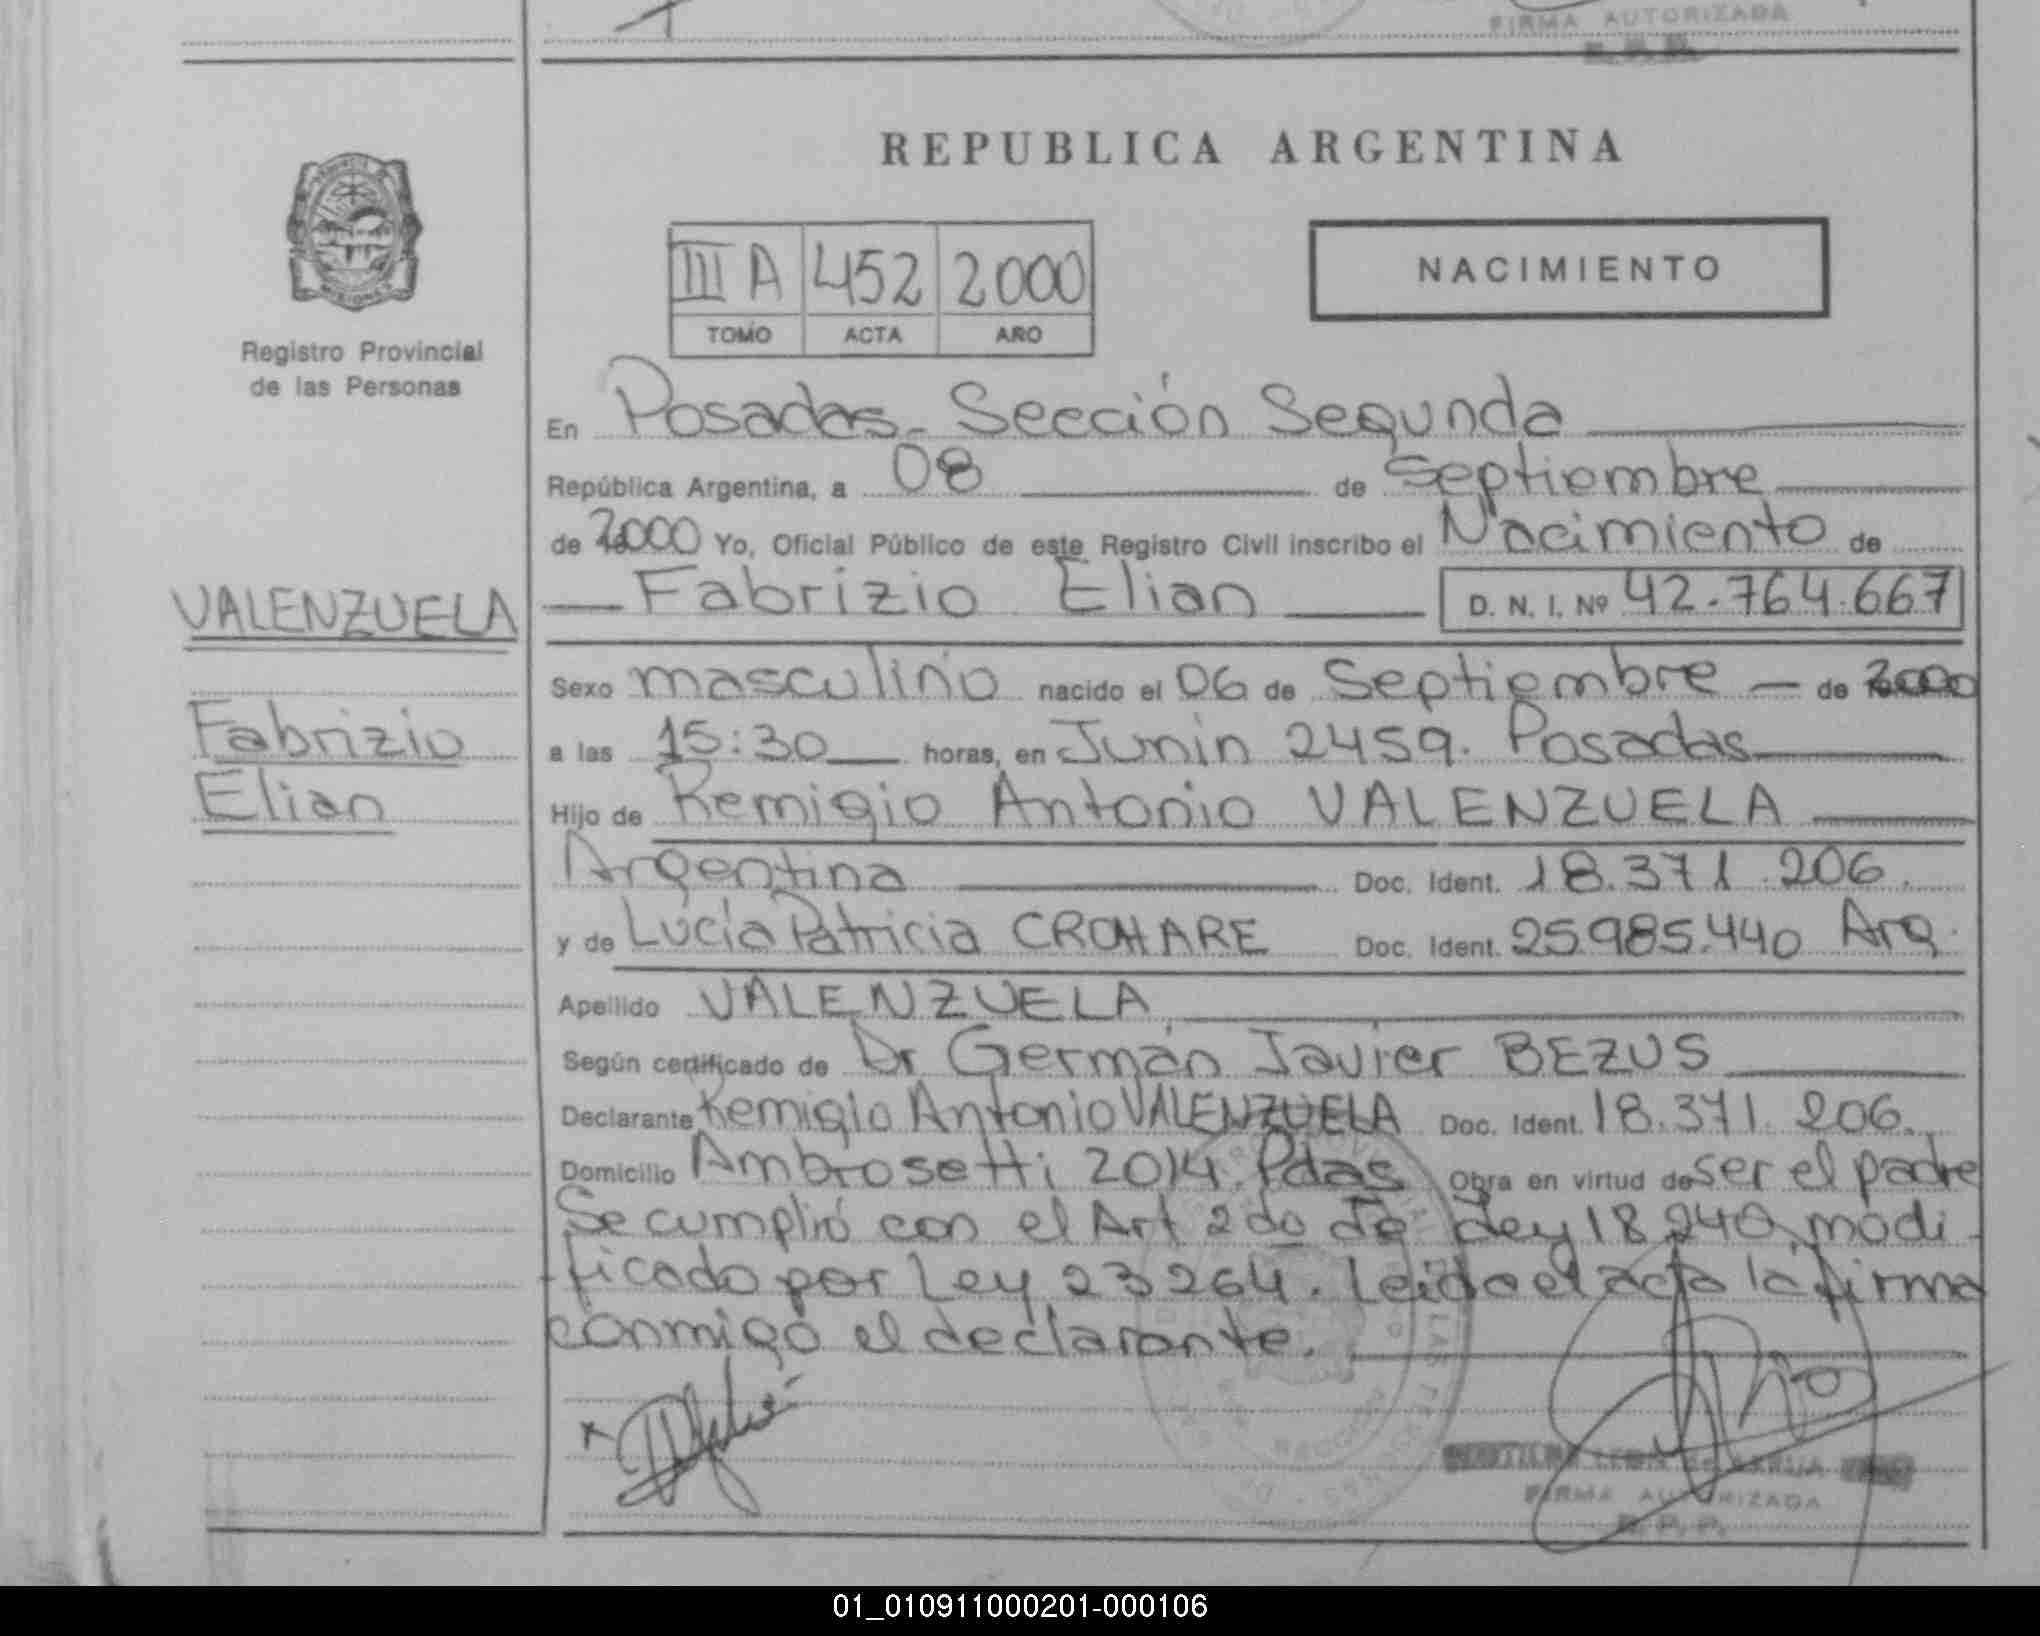 FIRMA AUTORIZADA
REPUBLICA ARGENTINA
MISIONES
Registro Provincial
de las Personas
III A 452 2000
TOMO ACTA AÑO
NACIMIENTO
En Posadas - Sección Segunda
República Argentina, a 08 de Septiembre
de 2000 Yo, Oficial Público de este Registro Civil inscribo el Nacimiento de
Fabrizio Elian D. N. I. Nº 42.764.667
VALENZUELA
Fabrizio
Elian
Sexo masculino nacido el 06 de Septiembre de 2000
a las 15:30 horas, en Junin 2459. Posadas
Hijo de Remigio Antonio VALENZUELA
Argentina Doc. Ident. 18.371.206.
y de Lucía Patricia CROHARE Doc. Ident. 25.985.440 Arg.
Apellido VALENZUELA
Según certificado de Dr Germán Javier BEZUS
Declarante Remigio Antonio VALENZUELA Doc. Ident. 18.371.206.
Domicilio Ambrosetti 2014. Pdas Obra en virtud de ser el padre
Se cumplió con el Art 2do de Ley 18.240, modi-
ficado por Ley 23264. Leida el acta la firma
conmigo el declarante.
FIRMA AUTORIZADA
R. P. P.
01_010911000201-000106